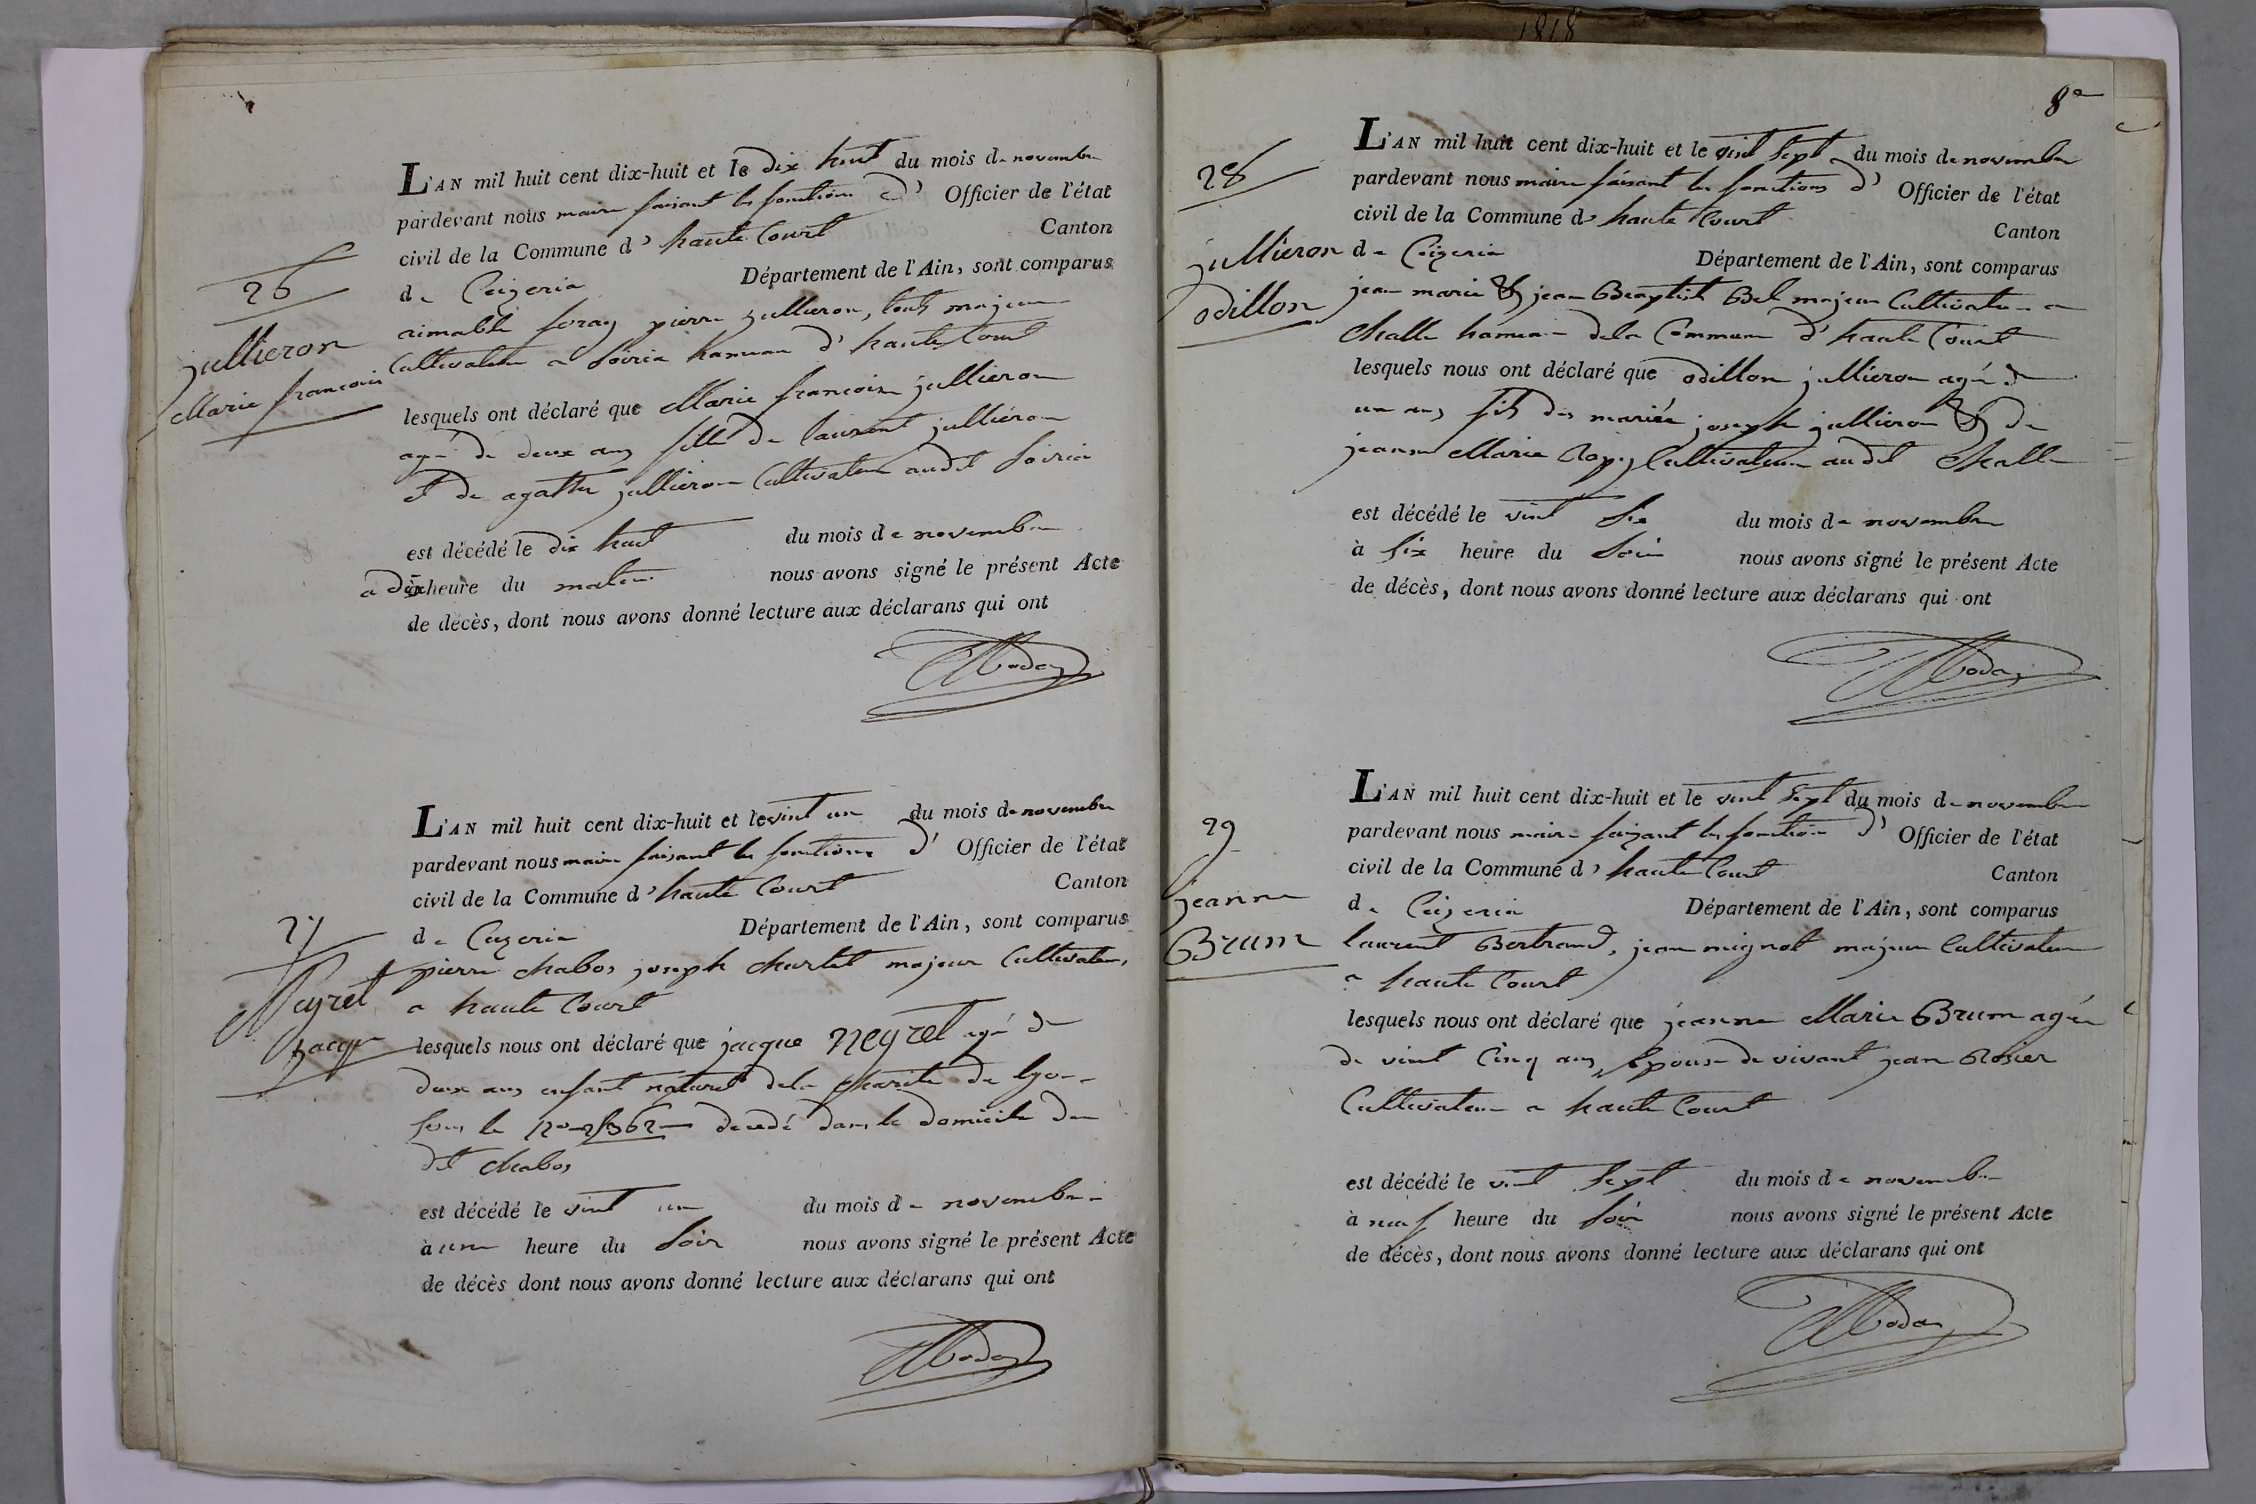 L'AN mil huit cent dix-huit et le dix huit du mois de novembre
pardevant nous maire faisant les fonctions d' Officier de l'état
civil de la Commune d' haute Court Canton
de Ceizeria Département de l'Ain, sont comparus
26
jullieron
Marie francoise
aimable foray pierre jullieron, touts majeur
Cultivateur a soiria hameau d' haute Court
lesquels ont déclaré que Marie francoise jullieron
agé de deux ans fille de laurent jullieron
et de agathe jullieron Cultivateur audit soiria
est décédé le dix huit du mois de novembre
a dix heure du matin nous avons signé le présent Acte
de décès, dont nous avons donné lecture aux déclarans qui ont
L'AN mil huit cent dix-huit et le vint un du mois de novembre
pardevant nous maire faisant les fonctions d' Officier de l'état
civil de la Commune d' haute Court Canton
de Ceyzeria Département de l'Ain, sont comparus
27
Neyret
jacque
pierre chabos joseph chartet majeur Cultivateur
a haute Court
lesquels nous ont déclaré que jacque NEYRET agé de
deux ans enfant naturel dela charite de lyon
sous le No decedé dans le domicile du
dit chabos
est décédé le vint un du mois de novembre
à une heure du soir nous avons signé le présent Acte
de décès dont nous avons donné lecture aux déclarans qui ont
1818
8e
L'AN mil huit cent dix-huit et le vint sept du mois de novembre
pardevant nous maire faisant les fonctions d' Officier de l'état
civil de la Commune d' haute Court Canton
de Ceizeria Département de l'Ain, sont comparus
28
jullieron
odillon
jean marie & jean Baptist Bel majeur Cultivateur a
challe hameau dela Commune d' haute Court
lesquels nous ont déclaré que odillon jullieron agé de
un ans fils des mariés joseph jullieron & de
jeanne Marie Cultivateur audit Challe
est décédé le vint six du mois de novembre
à six heure du soir nous avons signé le présent Acte
de décès, dont nous avons donné lecture aux déclarans qui ont
L'AN mil huit cent dix-huit et le vint sept du mois de novembre
pardevant nous maire faizant les fonction d' Officier de l'état
civil de la Commune d' haute Court Canton
de Ceizeria Département de l'Ain, sont comparus
29
jeanne
Brum
laurent Bertrand, jean mignot majeur Cultivateur
a haute Court
lesquels nous ont déclaré que jeanne Marie Brum agée
de vint Cinq ans Epouse de vivant jean Rosier
Cultivateur a haute Court
est décédé le vint sept du mois de novembre
à neuf heure du soir nous avons signé le présent Acte
de décès, dont nous avons donné lecture aux déclarans qui ont